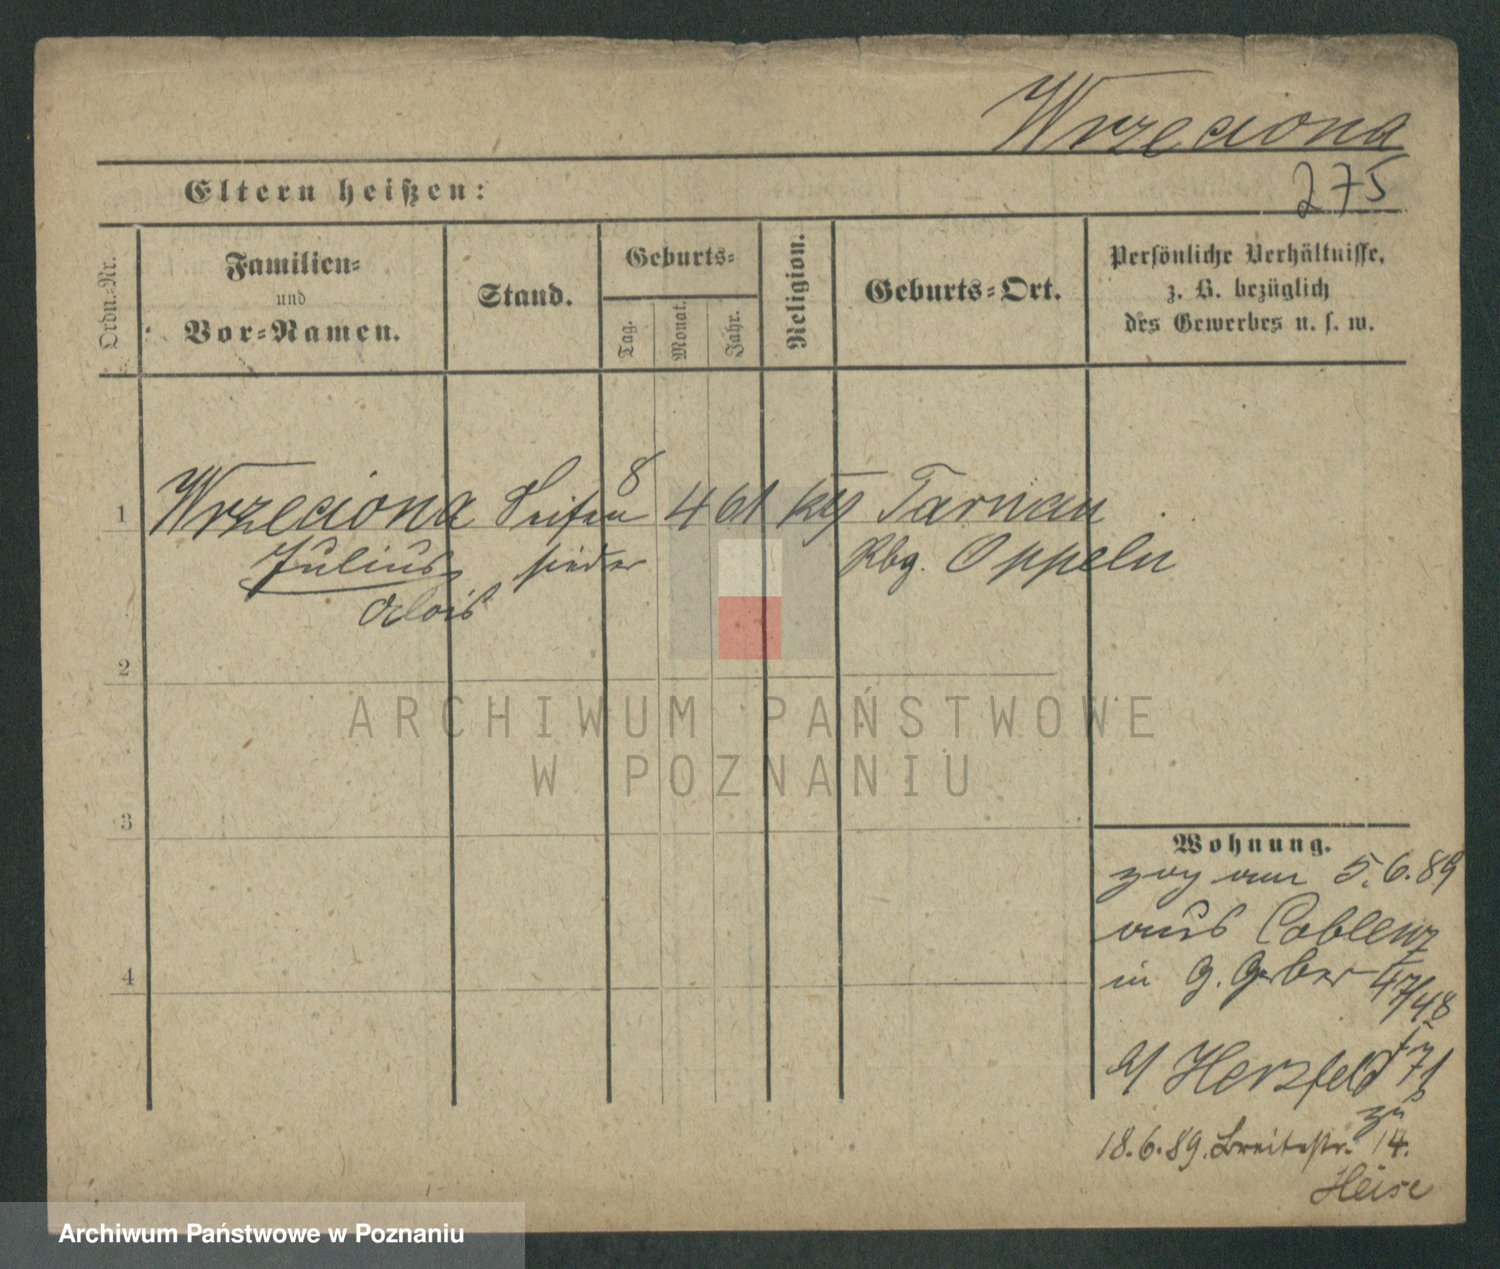 Wrzeciona
275
Eltern heißen:
Ordn.-Nr.
Familien-
und
Vor-Namen.
Stand.
Geburts-
Tag.
Monat.
Jahr.
Religion.
Geburts-Ort.
Persönliche Verhältnisse,
z. B. bezüglich
des Gewerbes u. s. w.
1 Wrzeciona Seifen 8 4 61 ktg Tarnau
Julius sieder Rbg. Oppeln
Alois
2
3
4
Wohnung.
zog am 5.6.89
aus Coblenz
in G. Gerber 47/48
b/ Herzfeld
zu
18.6.89. Breitestr. 14.
Heise
ARCHIWUM PAŃSTWOWE
W POZNANIU
Archiwum Państwowe w Poznaniu